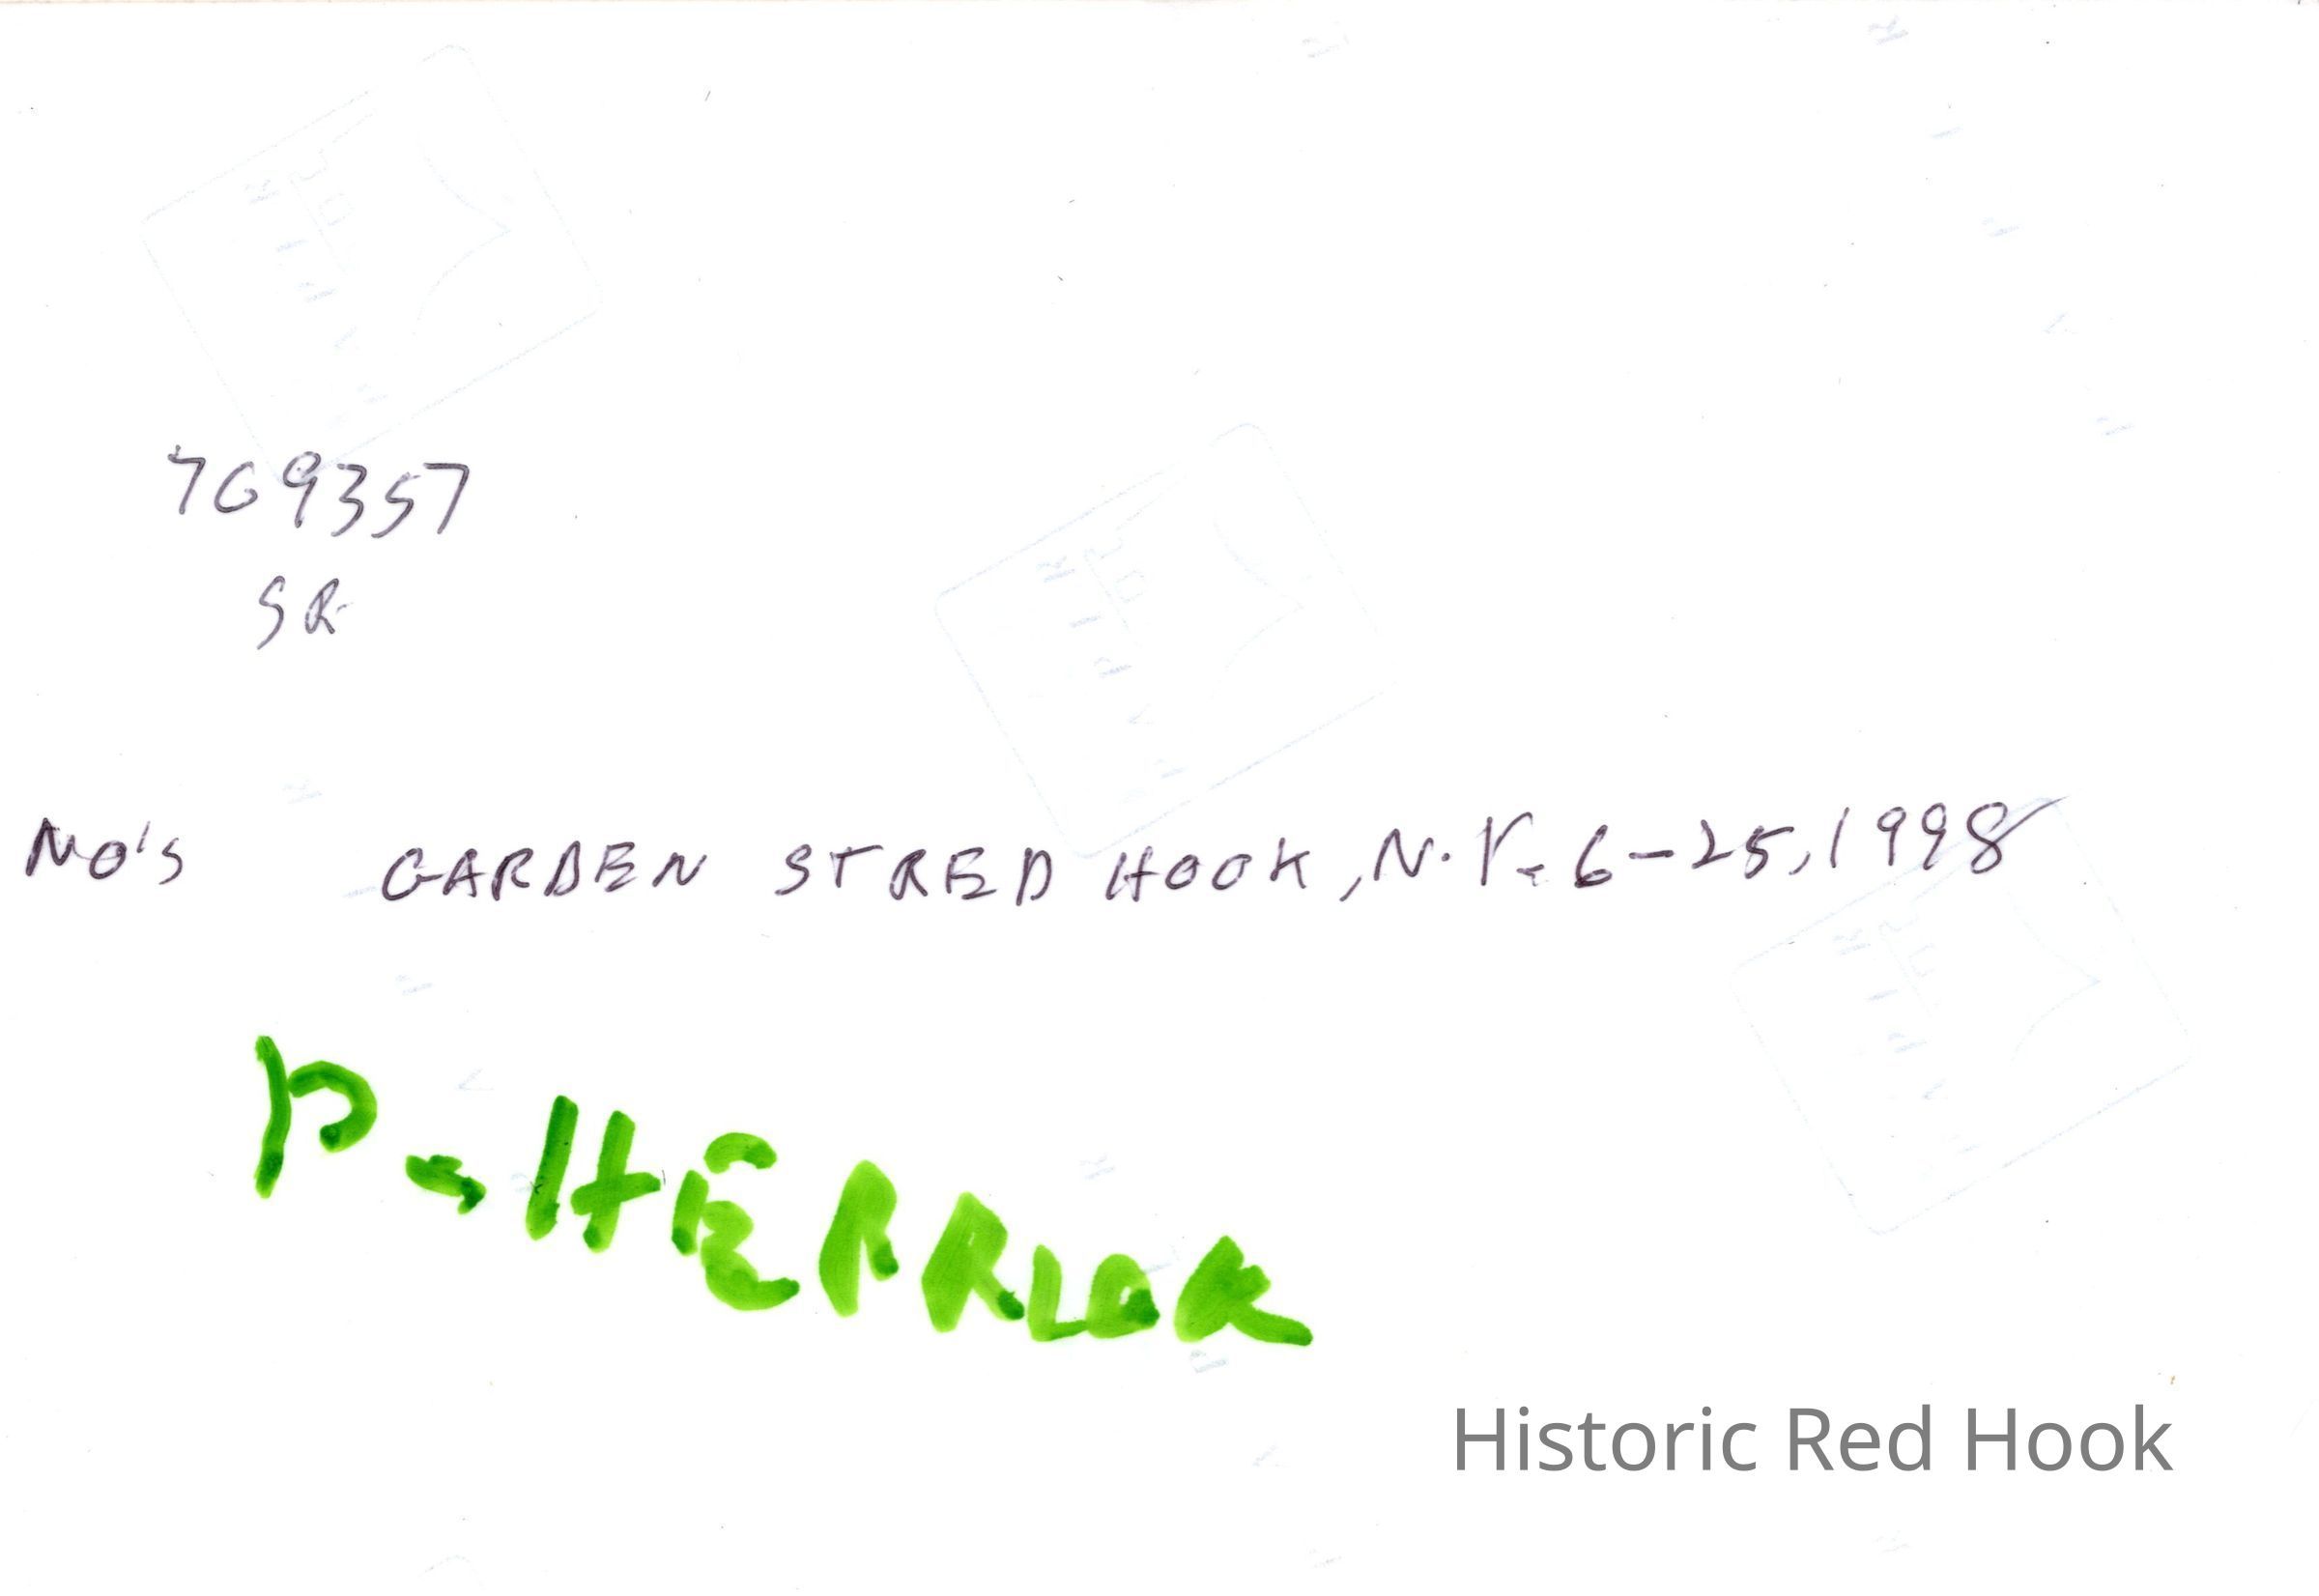 769357
SR
NO'S GARDEN ST RED HOOK, N.Y. 6-25, 1998
Historic Red Hook